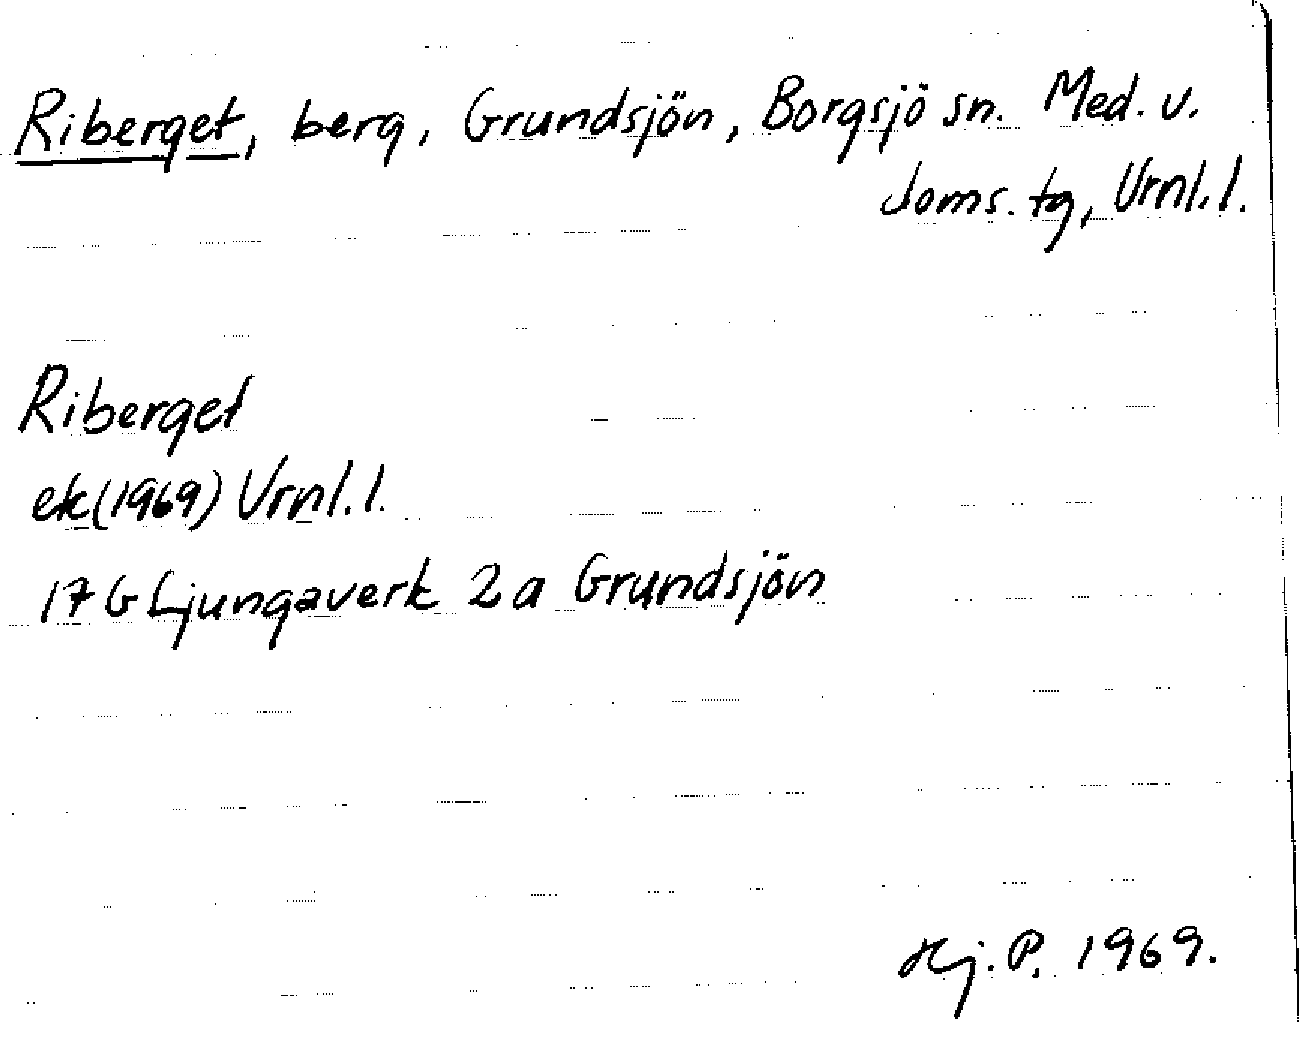 Riberget, berg, Grundsjön, Borgsjö sn. Med. v.
doms. tg, Vrnl.l.
Riberget
ek(1969) Vrnl.l.
17 G Ljungaverk 2 a Grundsjön
Hj. P. 1969.